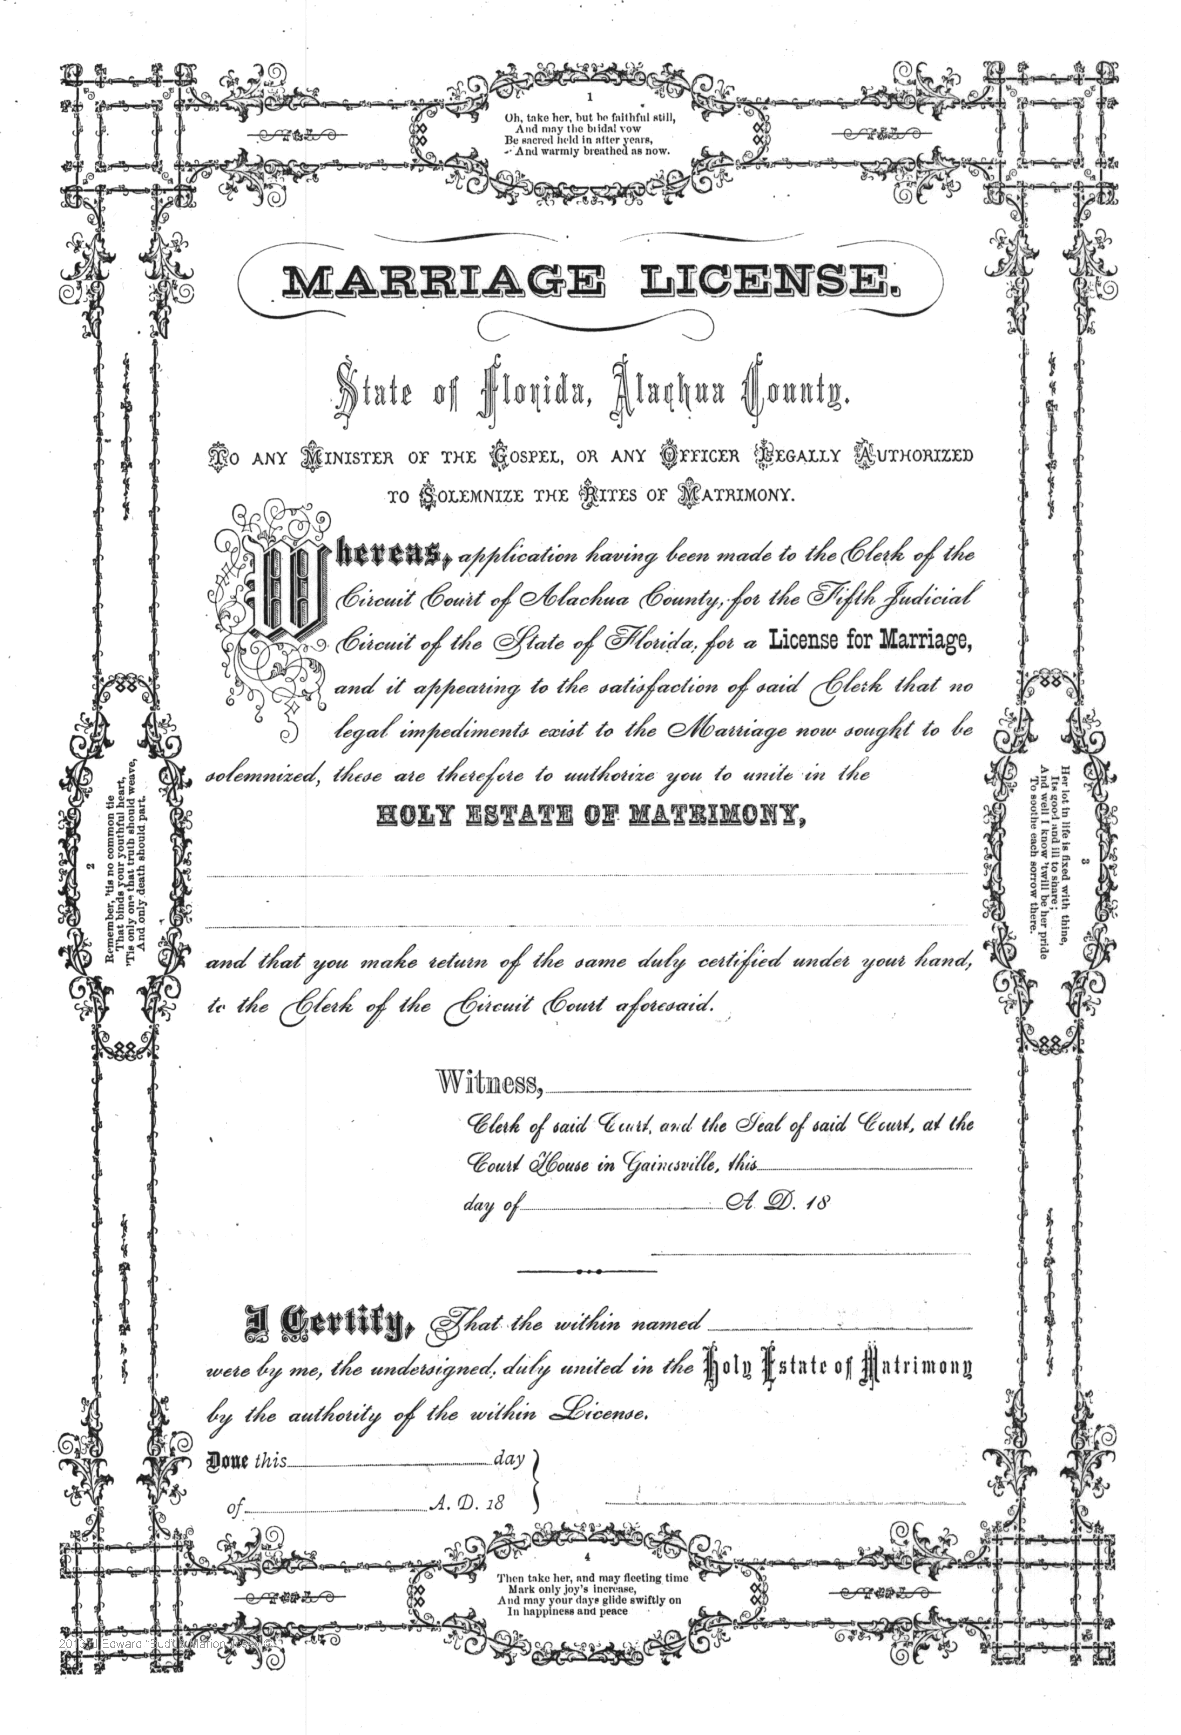 1
Oh, take her, but be faithful still,
And may the bridal vow
Be sacred held in after years,
And warmly breathed as now.
MARRIAGE LICENSE.
State of Florida, Alachua County.
TO ANY MINISTER OF THE GOSPEL, OR ANY OFFICER LEGALLY AUTHORIZED
TO SOLEMNIZE THE RITES OF MATRIMONY.
Whereas, application having been made to the Clerk of the
Circuit Court of Alachua County, for the Fifth Judicial
Circuit of the State of Florida, for a License for Marriage,
and it appearing to the satisfaction of said Clerk that no
legal impediments exist to the Marriage now sought to be
solemnized, these are therefore to authorize you to unite in the
HOLY ESTATE OF MATRIMONY,
2
Remember, 'tis no common tie
That binds your youthful heart,
'Tis only one that truth should weave,
And only death should part.
3
Her lot in life is fixed with thine,
Its good and ill to share;
And well I know 'twill be her pride
To soothe each sorrow there.
and that you make return of the same duly certified under your hand,
to the Clerk of the Circuit Court aforesaid.
Witness,
Clerk of said Court, and the Seal of said Court, at the
Court House in Gainesville, this
day of A. D. 18
I Certify, That the within named
were by me, the undersigned, duly united in the Holy Estate of Matrimony
by the authority of the within License.
Done this day
of A. D. 18
4
Then take her, and may fleeting time
Mark only joy's increase,
And may your days glide swiftly on
In happiness and peace